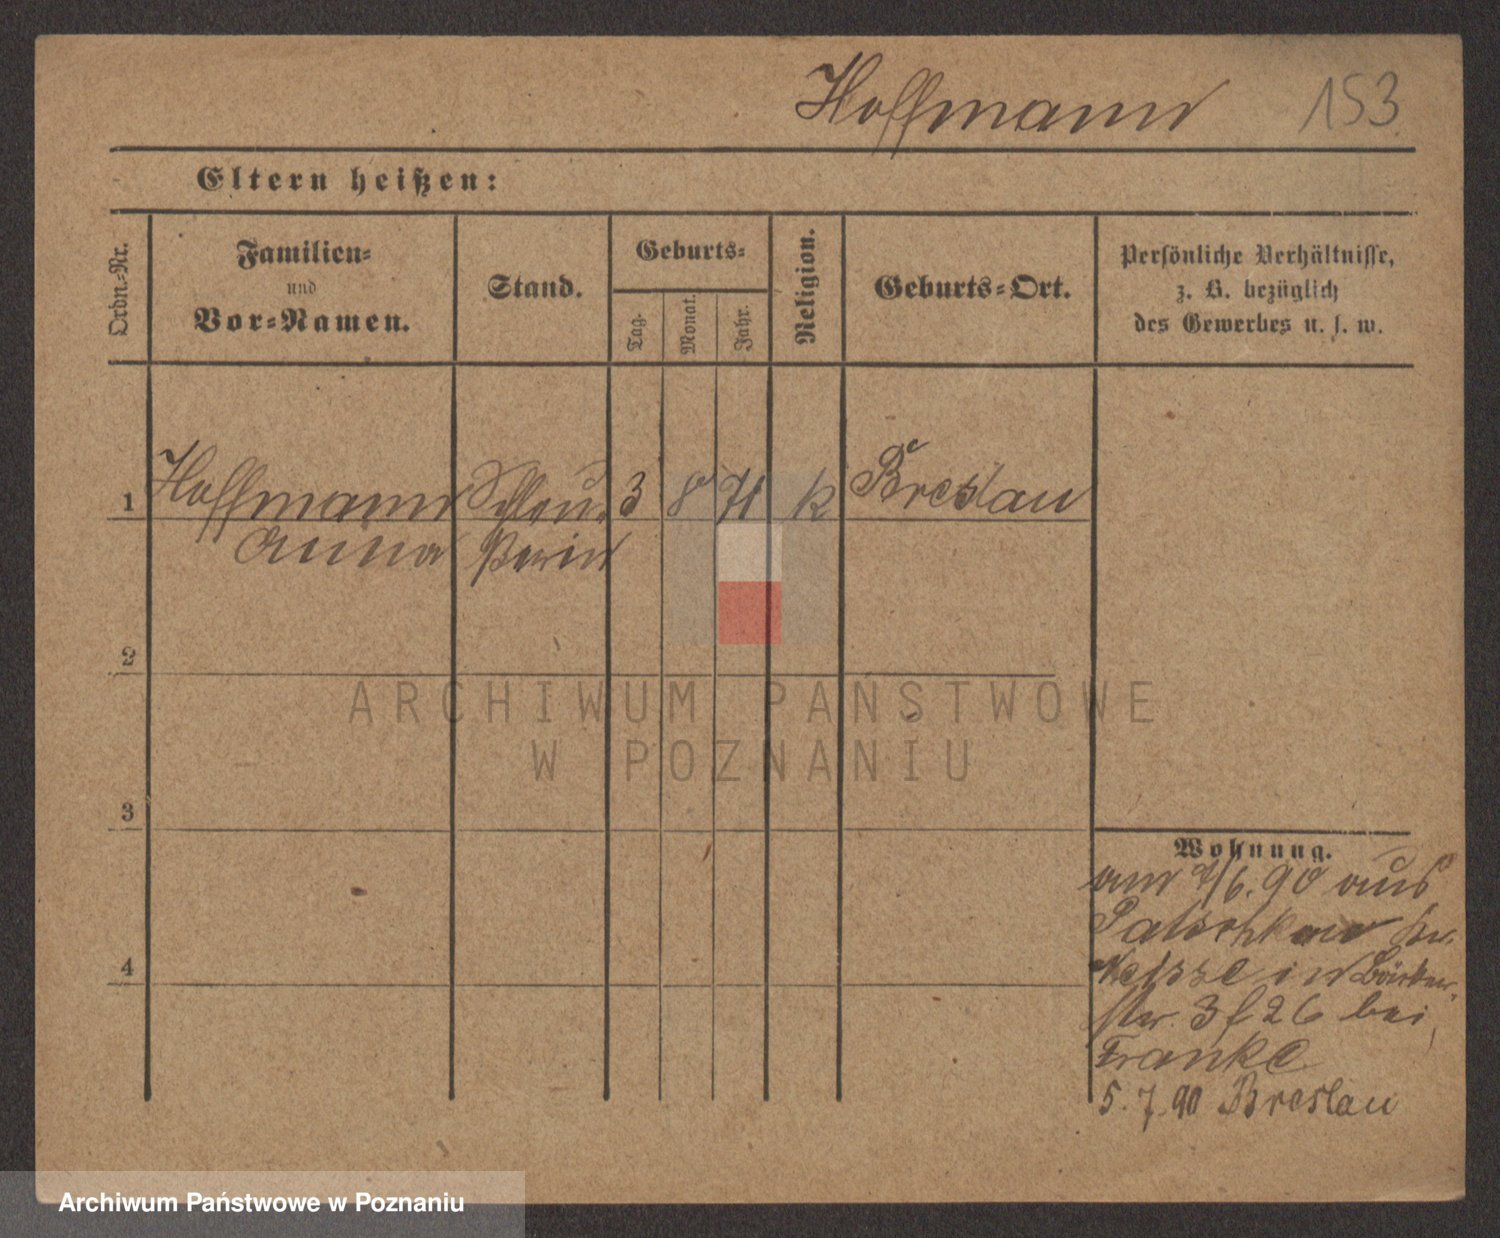 Hoffmann 153
Eltern heißen:
Ordn.-Nr.
Familien-
und
Vor-Namen.
Stand.
Geburts-
Tag.
Monat.
Jahr.
Religion.
Geburts-Ort.
Persönliche Verhältnisse,
z. B. bezüglich
des Gewerbes u. s. w.
1 Hoffmann Schleu- 3 8 71 k Breslau
Anna ßerin
2
3
4
ARCHIWUM PAŃSTWOWE
W POZNANIU
Wohnung.
am /6. 90 aus
Patschkau Kr.
Neisse in Bäcker-
str. 3 f 26 bei
Franke
5. 7. 90 Breslau
Archiwum Państwowe w Poznaniu